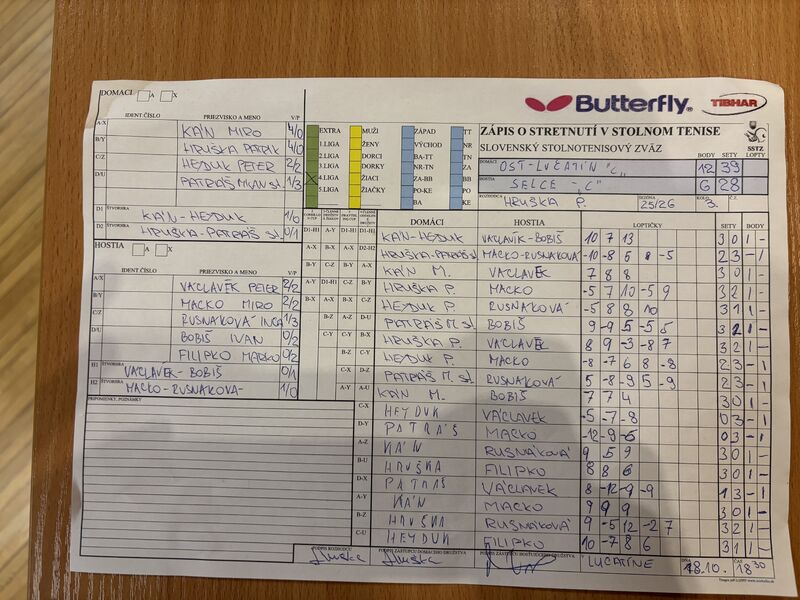 Butterfly TIBHAR
DOMÁCI A X
IDENT. ČÍSLO PRIEZVISKO A MENO V/P
A/X KÁN MIRO 4/0
B/Y HRUŠKA PATRIK 4/0
C/Z HEYDUK PETER 2/2
D/U PATRÁŠ MILAN st. 1/3
ŠTVORHRA
D1 KÁN-HEYDUK 1/0
D2 HRUŠKA-PATRÁŠ st. 0/1
HOSTIA A X
IDENT ČÍSLO PRIEZVISKO A MENO V/P
A/X VACLAVĚK PETER 2/2
B/Y MACKO MIRO 2/2
C/Z RUSNÁKOVÁ INGA 1/3
D/U BOBIŠ IVAN 0/2
FILIPKO MARKO 0/2
H1 VACLAVĚK-BOBIŠ 0/1
H2 MACKO-RUSNÁKOVÁ 1/0
PRIPOMIENKY, POZNÁMKY
EXTRA MUŽI ZÁPAD TT
1.LIGA ŽENY VÝCHOD NR
2.LIGA DORCI BA-TT TN
3.LIGA DORKY NR-TN ZA
4.LIGA ŽIACI ZA-BB BB
5.LIGA ŽIAČKY PO-KE PO
BA KE
ZÁPIS O STRETNUTÍ V STOLNOM TENISE
SLOVENSKÝ STOLNOTENISOVÝ ZVÄZ
SSTZ
BODY SETY LOPTY
DOMÁCI OŠT-LUČATÍN "C" 12 39
HOSTIA SELCE "C" 6 28
ROZHODCA HRUŠKA P. SEZÓNA 25/26 KOLO 3. Č.Z.
DOMÁCI HOSTIA LOPTIČKY SETY BODY
KÁN-HEYDUK VACLAVÍK-BOBIŠ 10 7 13 3 0 1 -
HRUŠKA-PATRÁŠ st. MACKO-RUSNÁKOVÁ -10 -8 5 8 -5 2 3 - 1
KÁN M. VACLAVĚK 7 8 8 3 0 1 -
HRUŠKA P. MACKO -5 7 10 -5 9 3 2 1 -
HEYDUK P. RUSNÁKOVÁ -5 8 8 10 3 1 1 -
PATRÁŠ M. st. BOBIŠ 9 -9 5 -5 5 3 2 1 -
HRUŠKA P. VACLAVĚK 8 9 -3 -8 7 3 2 1 -
HEYDUK P. MACKO -8 -7 6 8 -8 2 3 - 1
PATRÁŠ M. st. RUSNÁKOVÁ 5 -8 -9 5 -9 2 3 - 1
KÁN M. BOBIŠ 7 7 4 3 0 1 -
HEYDUK VÁCLAVEK -5 -7 -8 0 3 - 1
PATRÁŠ MACKO -12 -9 -6 0 3 - 1
KÁN RUSNÁKOVÁ 9 5 9 3 0 1 -
HRUŠKA FILIPKO 8 8 6 3 0 1 -
PATRÁŠ VÁCLAVEK 8 -12 -9 -9 1 3 - 1
KÁN MACKO 9 9 9 3 0 1 -
HRUŠKA RUSNÁKOVÁ 9 -5 12 -2 7 3 2 1 -
HEYDUK FILIPKO 10 -7 8 6 3 1 1 -
PODPIS ROZHODCU PODPIS ZÁSTUPCU DOMÁCEHO DRUŽSTVA PODPIS ZÁSTUPCU HOSŤUJÚCEHO DRUŽSTVA
Hruška Hruška LUČATÍNE DŇA 18.10. ČAS 18 30